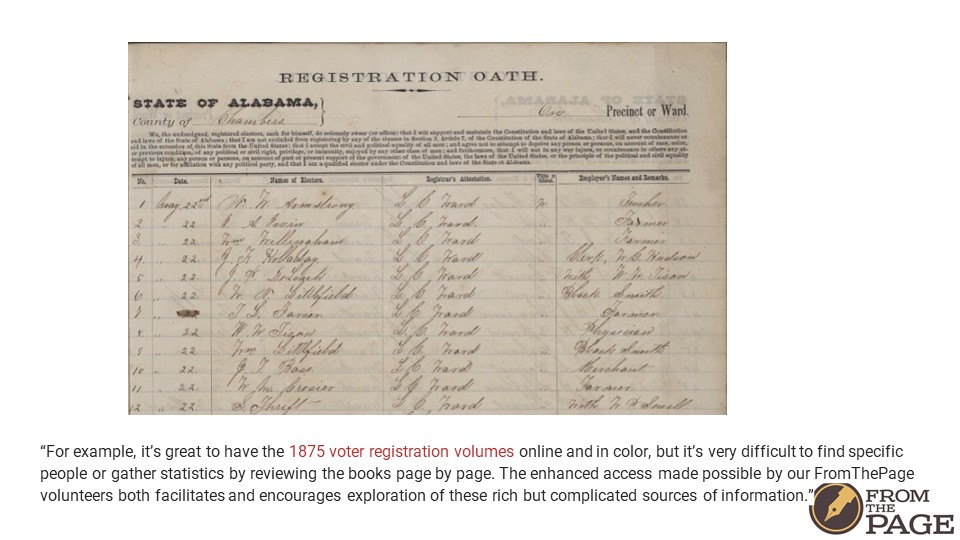 REGISTRATION OATH.
STATE OF ALABAMA,
County of Chambers
Precinct or Ward.
We, the undersigned, registered electors, each for himself, do solemnly swear (or affirm) that I will support and maintain the Constitution and laws of the United States, and the Constitution
and laws of the State of Alabama; that I am not excluded from registering by any of the clauses in Section 3, Article 7, of the Constitution of the State of Alabama; that I will never countenance or
aid in the secession of this State from the United States; that I accept the civil and political equality of all men; and agree not to attempt to deprive any person or persons, on account of race, color,
or previous condition, of any political or civil right, privilege, or immunity, enjoyed by any other class of men; and furthermore, that I will not in any way injure, or countenance in others any at-
tempt to injure, any person or persons, on account of past or present support of the government of the United States, the laws of the United States, or the principle of the political and civil equality
of all men, or for affiliation with any political party, and that I am a qualified elector under the Constitution and laws of the State of Alabama.
No. Date. Names of Electors. Registrar's Attestation. White or Colored. Employer's Names and Remarks.
1 22nd W. W. Armstrong L C Ward W. Teacher
2 " 22 Ervin L C Ward. " Farmer
3 " 22. Wm Willingham L C Ward " Farmer
4 " 22 Holladay L C Ward " Clerk, W. C. Hudson
5 " 22 L C Ward " With W. W. Tison
6 " 22 Littlefield L C Ward " Black Smith
7 " L C Ward " Farmer
8 " 22 W. W. L. C Ward " Physician
9 " 22 Wm Littlefield L C Ward " Black Smith
10 " 22 J T Bass L C Ward Merchant
11 " 22 W Crosier L C Ward Farmer
12 " 22 Thrift L C, Ward With
“For example, it’s great to have the 1875 voter registration volumes online and in color, but it’s very difficult to find specific
people or gather statistics by reviewing the books page by page. The enhanced access made possible by our FromThePage
volunteers both facilitates and encourages exploration of these rich but complicated sources of information.”
FROM
THE
PAGE